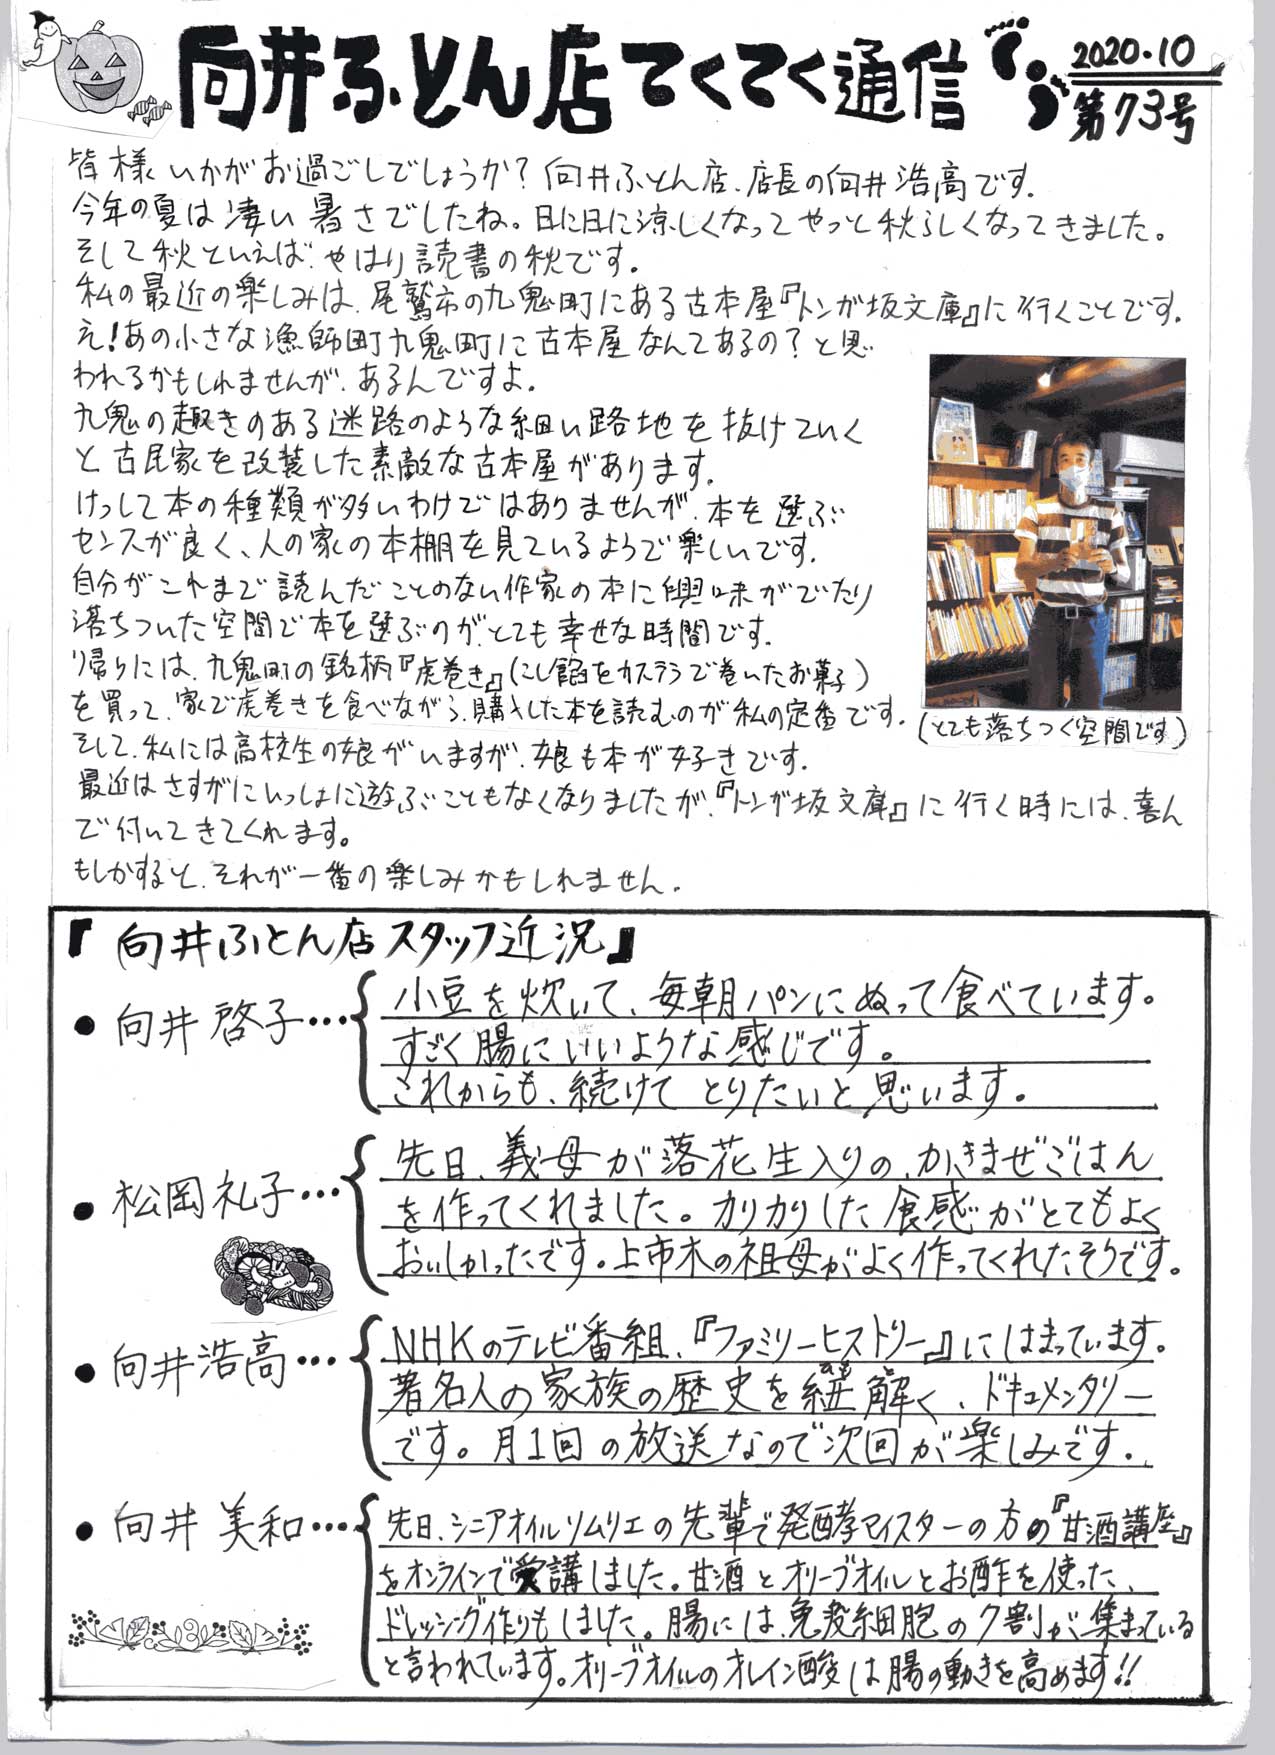 向井ふとん店てくてく通信
2020.10
第73号
皆様いかがお過ごしでしょうか?向井ふとん店、店長の向井浩高です。
今年の夏は凄い暑さでしたね。日に日に涼しくなってやっと秋らしくなってきました。
そして秋といえば、やはり読書の秋です。
私の最近の楽しみは、尾鷲市の九鬼町にある古本屋『トンガ坂文庫』に行くことです。
え!あの小さな漁師町九鬼町に古本屋なんてあるの?と思
われるかもしれませんが、あるんですよ。
九鬼の趣きのある迷路のような細い路地を抜けていく
と古民家を改装した素敵な古本屋があります。
けっして本の種類が多いわけではありませんが、本を選ぶ
センスが良く、人の家の本棚を見ているようで楽しいです。
自分がこれまで読んだことのない作家の本に興味がでたり
落ちついた空間で本を選ぶのが、とても幸せな時間です。
帰りには、九鬼町の銘柄『虎巻き』(こし餡をカステラで巻いたお菓子)
を買って、家で虎巻きを食べながら、購入した本を読むのが私の定番です。
(とても落ちつく空間です)
そして、私には高校生の娘がいますが、娘も本が好きです。
最近はさすがにいっしょに遊ぶこともなくなりましたが、『トンガ坂文庫』に行く時には、喜ん
で付いてきてくれます。
もしかすると、それが一番の楽しみかもしれません。
『向井ふとん店スタッフ近況』
●向井啓子…
小豆を炊いて、毎朝パンにぬって食べています。
すごく腸にいいような感じです。
これからも、続けてとりたいと思います。
●松岡礼子…
先日、義母が落花生入りの、かきまぜごはん
を作ってくれました。カリカリした食感がとてもよく
おいしかったです。上市木の祖母がよく作ってくれたそうです。
●向井浩高…
NHKのテレビ番組、『ファミリーヒストリー』にはまっています。
著名人の家族の歴史を紐解く、ドキュメンタリー
ひも と
です。月1回の放送なので次回が楽しみです。
●向井美和…
先日、シニアオイルソムリエの先輩で発酵マイスターの方の『甘酒講座』
をオンラインで受講しました。甘酒とオリーブオイルとお酢を使った、
ドレッシング作りもしました。腸には、免疫細胞の7割が集まっている
と言われています。オリーブオイルのオレイン酸は腸の動きを高めます!!